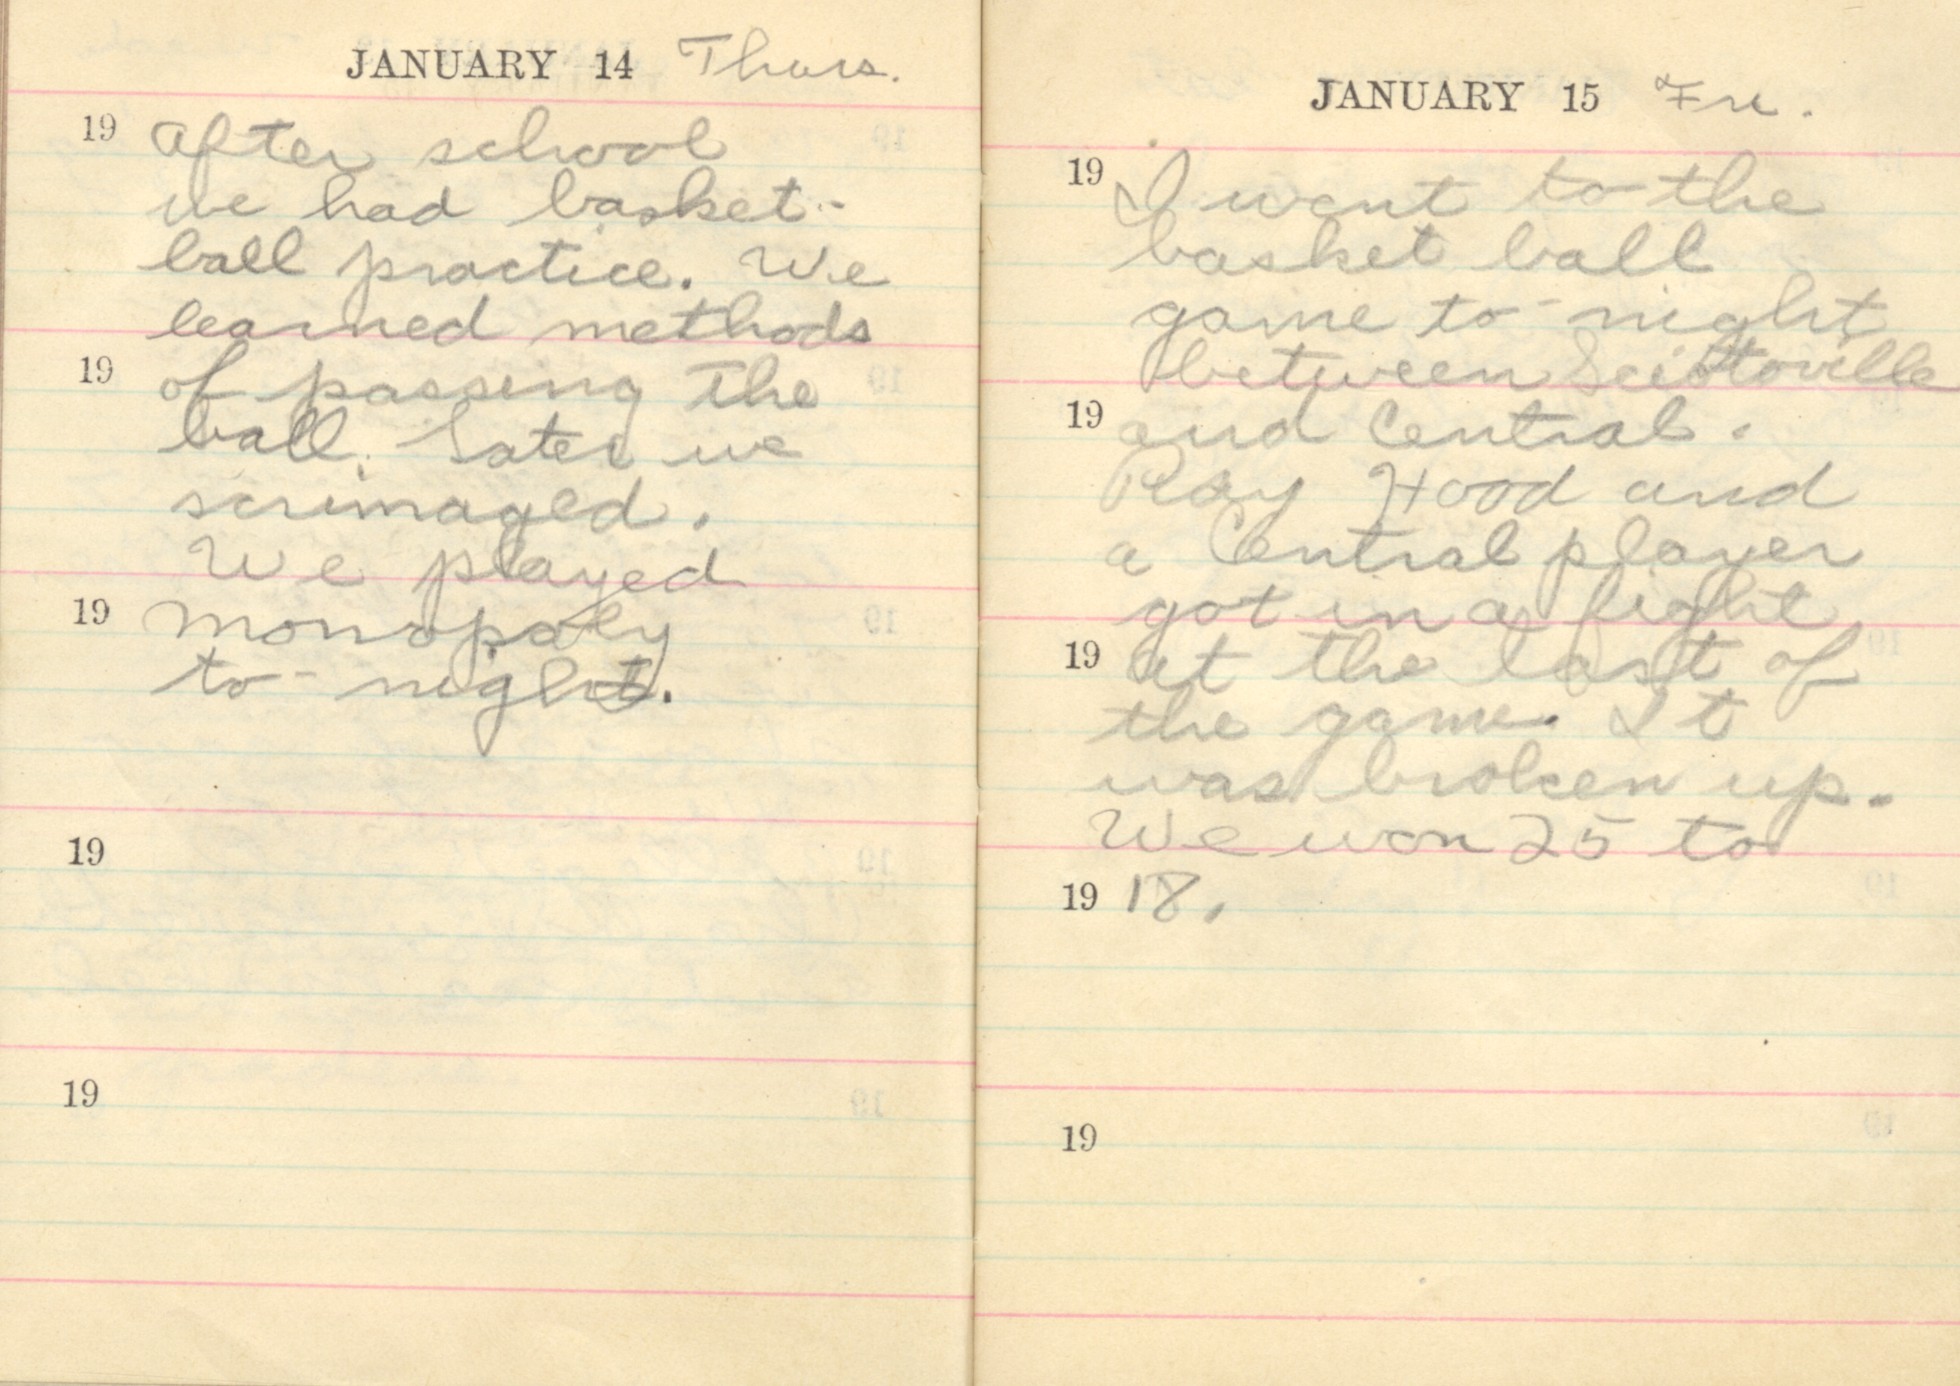 JANUARY 14 Thurs.
19 After school
we had basket-
ball practice. We
learned methods
19 of passing the
ball. Later we
scrimaged.
We played
19 monopoly
to-night.
19
19
JANUARY 15 Fri.
19 I went to the
basket ball
game to-night
between Sciotoville
19 and Central.
Ray Hood and
a Central player
got in a fight
19 at the last of
the game. It
was broken up.
We won 25 to
19 18.
19